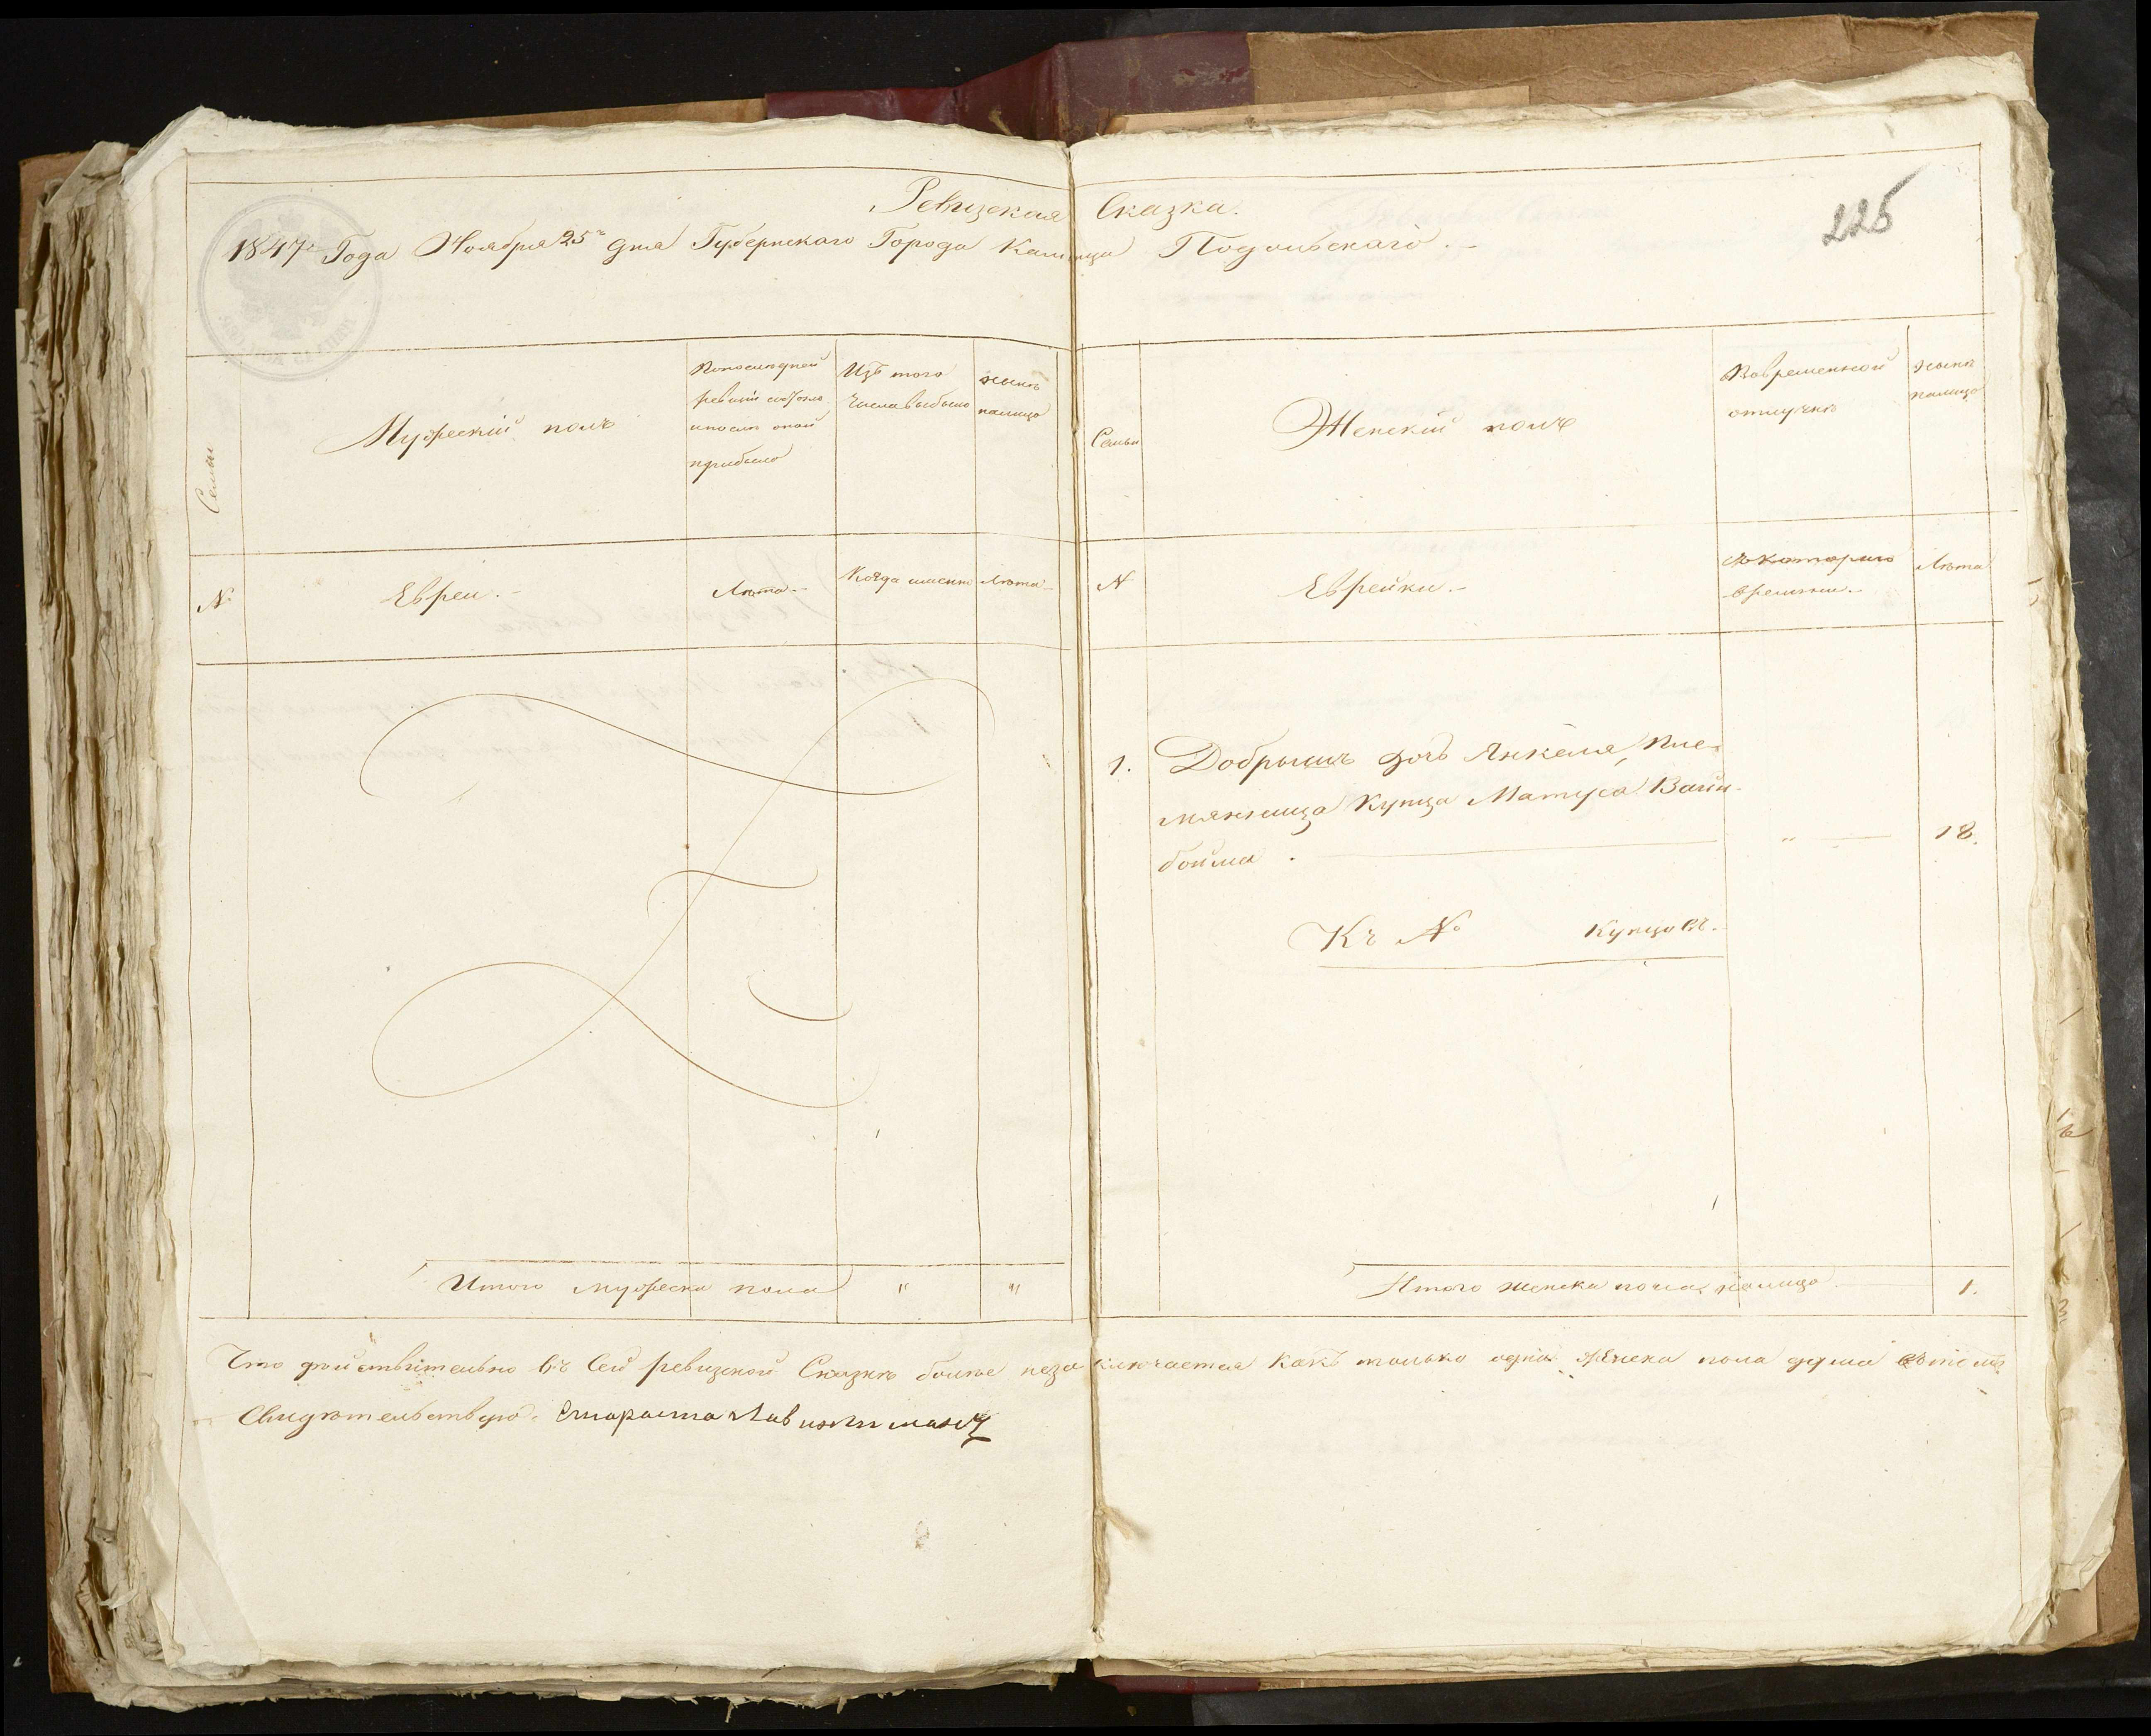 Ревизская Сказка.
225
1847го Года Ноября 25го дня Губернскаго Города Каменца Подольскаго.-
Семьи
Мужескій полъ
По последней
ревизіи состояло
и после оной
прибыло
Изъ того
числа выбыло
ныне
налицо
Семьи
Женскій полъ
Во временной
отлучке
ныне
налицо
№
Евреи.-
Лета.-
Когда именно
Лета-
№
Еврейки.-
съ котораго
времени.-
Лета
1. Добрышъ дочь Янкеля, пле-
мянница Купца Матуса Вайн-
бойма . " 18.
Къ № Купцовъ.
Итого мужеска пола " "
Итого женска пола налицо 1.
Что действительно въ Сей ревизской Сказке более незаключается какъ только одна женска пола душа въ томъ
Свидетельствую. Староста